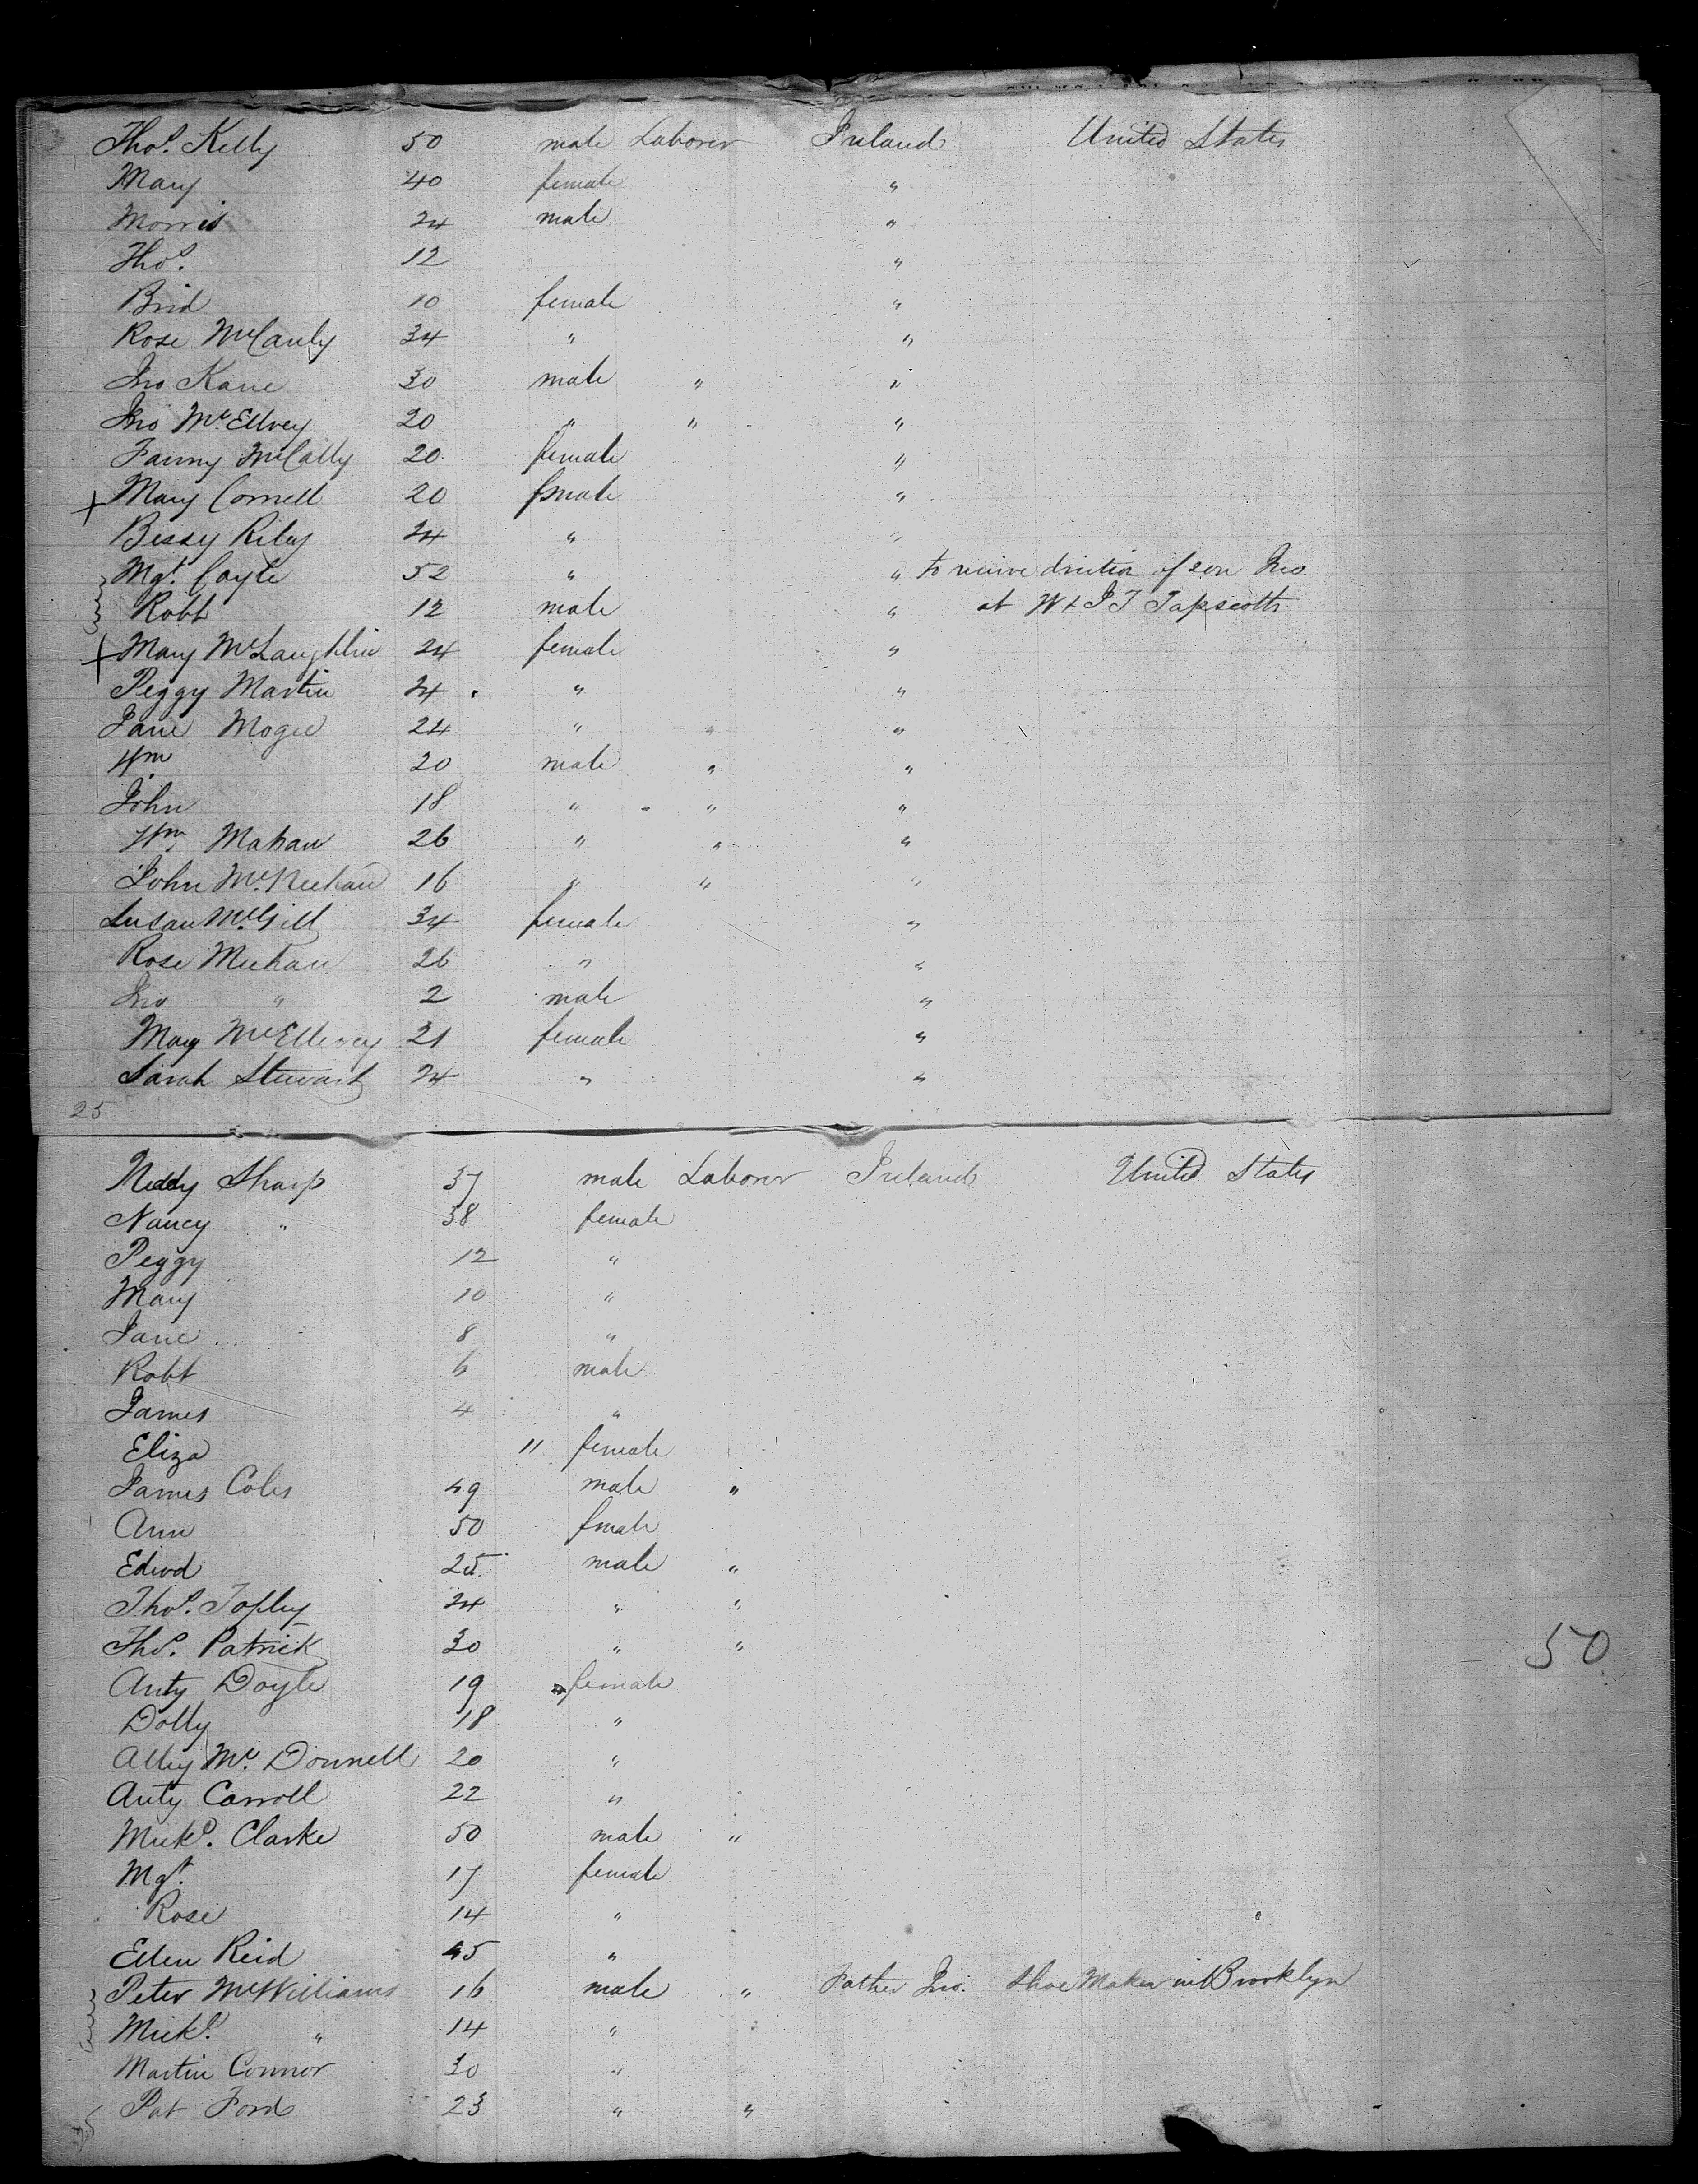 Thos. Kelly 50 male Laborer Ireland United States
Mary 40 female "
Morris 24 male "
Thos. 12 "
Brid 10 female "
Rose McCauly 34 " "
Jno Kane 30 male " "
Jno Mc.Elvey 20 " " "
Fanny McCally 20 female "
+ Mary Connell 20 female "
Bessy Riley 24 " "
Mgt. Coyle 52 " " to receive direction of son Jno
Robt 12 male " at W & J T Tapscotts
+ Mary McLaughlin 24 female "
Peggy Martin 24 " "
Jane Mogee 24 " " "
Wm 20 male " "
John 18 " " "
Wm Mahan 26 " " "
John Mc.Neehan 16 " " "
Susan Mc.Gill 34 female "
Rose Meehan 26 " "
Jno " 2 male "
Mary McEllevey 21 female "
Sarah Stewart 24 " "
25
Neddy Sharp 37 male Laborer Ireland United States
Nancy " 38 female
Peggy 12 "
Mary 10 "
Jane 8 "
Robt 6 male
James 4 "
Eliza 11 female
James Coles 49 male "
Ann 50 fmale
Edwd 25 male "
Thos. Topley 24 " "
Thos. Patrick 30 " "
50
Anty Doyle 19 female
Dolly 18 "
Alley Mc. Donnell 20 "
Anty Carroll 22 "
Michl. Clarke 50 male "
Mgt. 17 female
Rose 14 " "
Ellen Reid 45 "
Peter McWilliams 16 male " Father Jno. Shoe Maker in Brooklyn
Michl. " 14 " "
Martin Connor 30 "
Pat Ford 23 " "
25